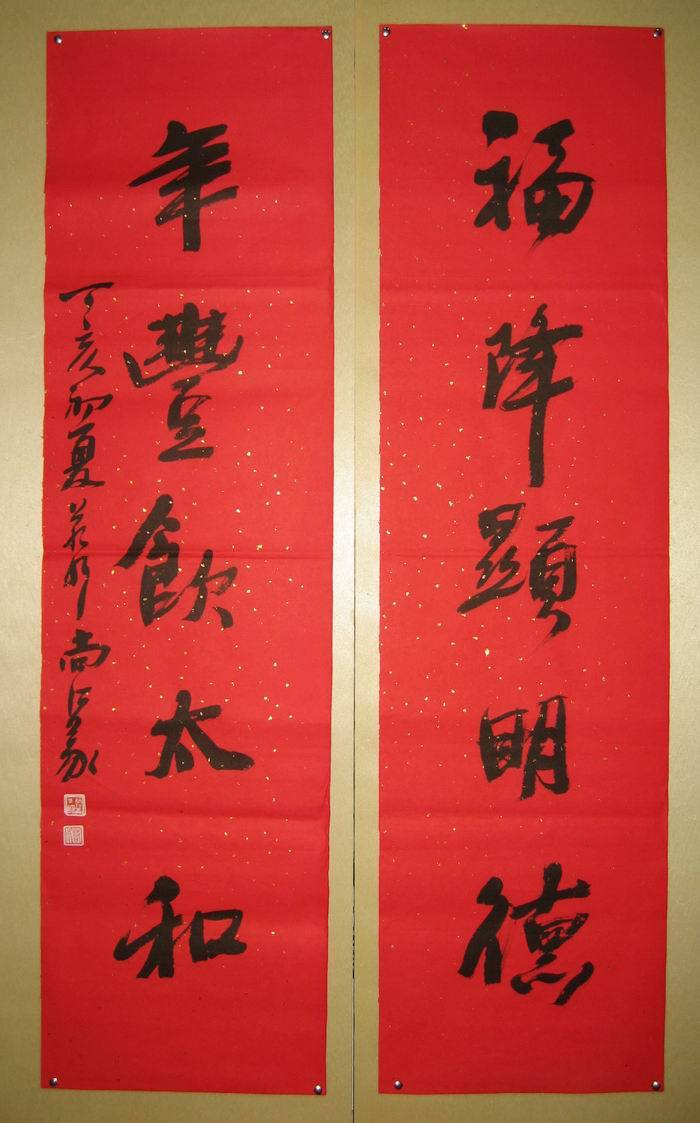 福降顯明德
年豐飲太和
丁亥初夏
尚